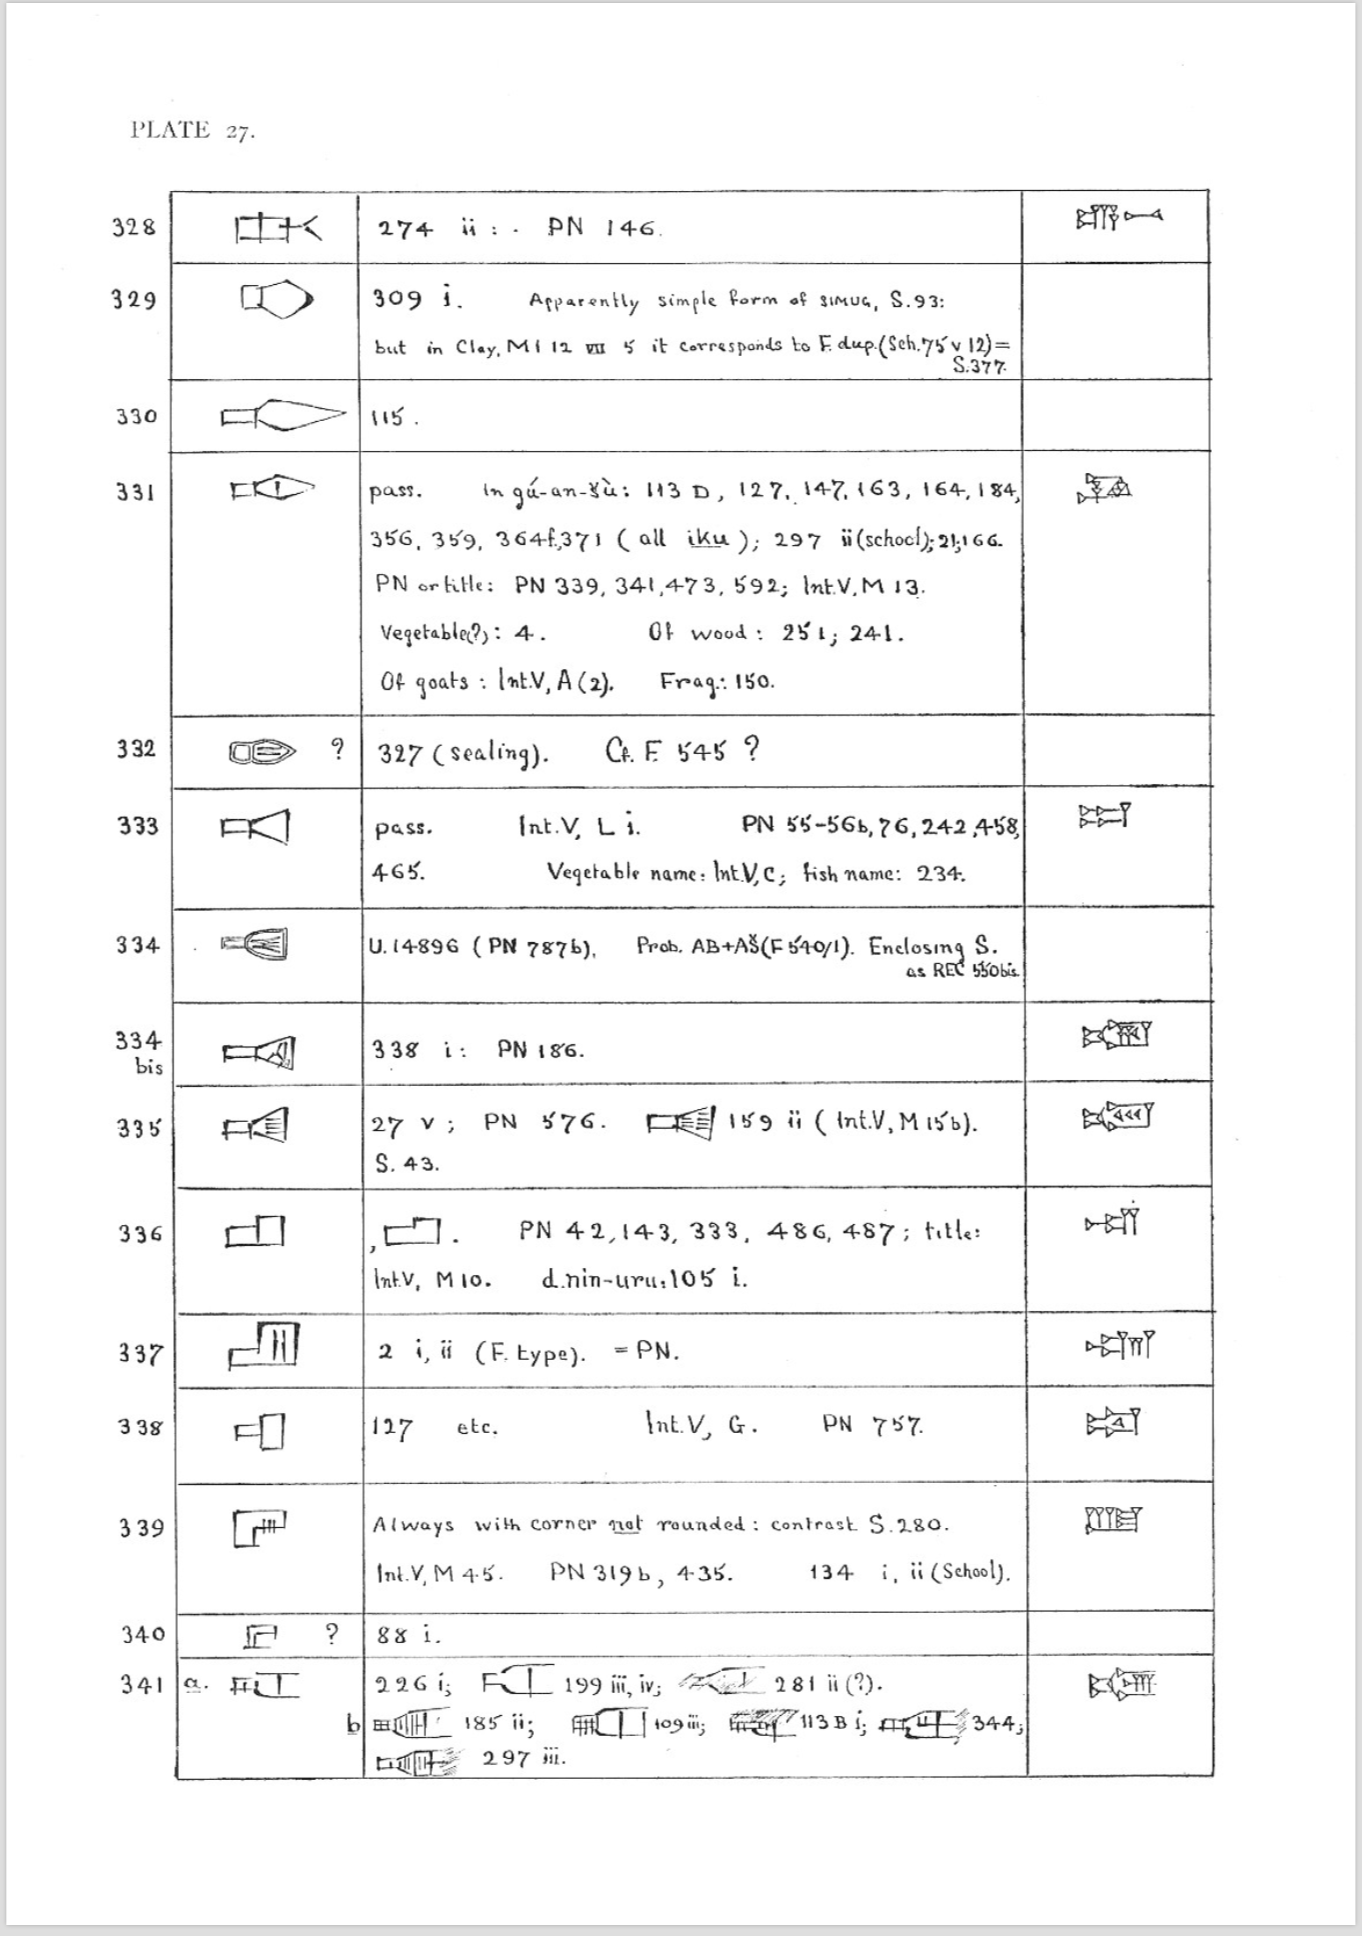 PLATE 27.
328 274 ii : . PN 146.
329 309 i. Apparently simple form of SIMUG, S.93:
but in Clay, MI 12 VII 5 it corresponds to F. dup. (Sch. 75 v 12) =
S.377.
330 115.
331 pass. In gú-an-šù: 113 D, 127, 147, 163, 164, 184,
356, 359, 364f, 371 (all iku); 297 ii (school); 21, 166.
PN or title: PN 339, 341, 473, 592; Int.V, M 13.
Vegetable(?): 4. Of wood: 251; 241.
Of goats: Int.V, A (2). Frag.: 150.
332 ? 327 (sealing). Cf. F. 545 ?
333 pass. Int.V, L i. PN 55-56b, 76, 242, 458,
465. Vegetable name: Int.V, C; fish name: 234.
334 U. 14896 (PN 787b). Prob. AB+AŠ (F 540/1). Enclosing S.
as REC 550 bis.
334 bis 338 i: PN 186.
335 27 v; PN 576. 159 ii (Int.V, M 15b).
S. 43.
336 , . PN 42, 143, 333, 486, 487; title:
Int.V, M 10. d.nin-uru: 105 i.
337 2 i, ii (F. type). = PN.
338 127 etc. Int.V, G. PN 757.
339 Always with corner not rounded: contrast S. 280.
Int.V, M 45. PN 319b, 435. 134 i, ii (School).
340 ? 88 i.
341 a. 226 i; 199 iii, iv; 281 ii (?).
b 185 ii; 109 iii; 113 B i; 344;
297 iii.